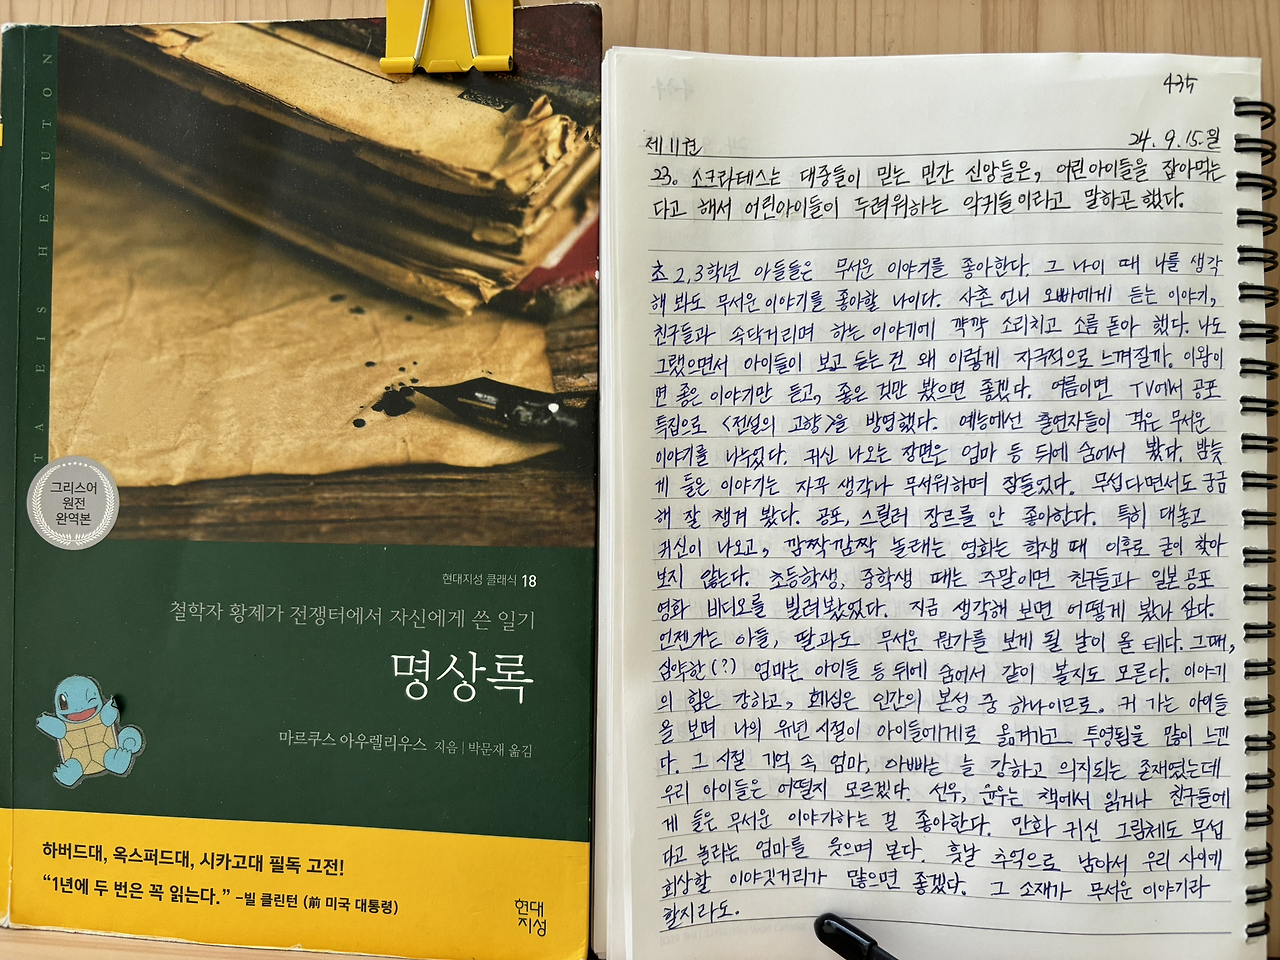 TA EIS HEAUTON
그리스어
원전
완역본
현대지성 클래식 18
철학자 황제가 전쟁터에서 자신에게 쓴 일기
명상록
마르쿠스 아우렐리우스 지음 | 박문재 옮김
하버드대, 옥스퍼드대, 시카고대 필독 고전!
“1년에 두 번은 꼭 읽는다.” –빌 클린턴 (前 미국 대통령)
현대
지성
435
제 11권 24. 9. 15. 일
23. 소크라테스는 대중들이 믿는 민간 신앙들은, 어린아이들을 잡아먹는
다고 해서 어린아이들이 두려워하는 악귀들이라고 말하곤 했다.
초 2,3학년 아들들은 무서운 이야기를 좋아한다. 그 나이 때 나를 생각
해 봐도 무서운 이야기를 좋아할 나이다. 사촌 언니 오빠에게 듣는 이야기,
친구들과 속닥거리며 하는 이야기에 꺅꺅 소리치고 소름 돋아 했다. 나도
그랬으면서 아이들이 보고 듣는 건 왜 이렇게 자극적으로 느껴질까. 이왕이
면 좋은 이야기만 듣고, 좋은 것만 봤으면 좋겠다. 여름이면 TV에서 공포
특집으로 <전설의 고향>을 방영했다. 예능에선 출연자들이 겪은 무서운
이야기를 나누었다. 귀신 나오는 장면은 엄마 등 뒤에 숨어서 봤다. 밤늦
게 들은 이야기는 자꾸 생각나 무서워하며 잠들었다. 무섭다면서도 궁금
해 잘 챙겨 봤다. 공포, 스릴러 장르를 안 좋아한다. 특히 대놓고
귀신이 나오고, 깜짝깜짝 놀래는 영화는 학생 때 이후로 굳이 찾아
보지 않는다. 초등학생, 중학생 때는 주말이면 친구들과 일본 공포
영화 비디오를 빌려봤었다. 지금 생각해 보면 어떻게 봤나 싶다.
언젠가는 아들, 딸과도 무서운 뭔가를 보게 될 날이 올 테다. 그때,
심약한(?) 엄마는 아이들 등 뒤에 숨어서 같이 볼지도 모른다. 이야기
의 힘은 강하고, 호기심은 인간의 본성 중 하나이므로. 커 가는 아이들
을 보며 나의 유년 시절이 아이들에게로 옮겨가고 투영됨을 많이 느낀
다. 그 시절 기억 속 엄마, 아빠는 늘 강하고 의지되는 존재였는데
우리 아이들은 어떨지 모르겠다. 선우, 윤우는 책에서 읽거나 친구들에
게 들은 무서운 이야기하는 걸 좋아한다. 만화 귀신 그림체도 무섭
다고 놀라는 엄마를 웃으며 본다. 훗날 추억으로 남아서 우리 사이에
회상할 이야깃거리가 많으면 좋겠다. 그 소재가 무서운 이야기라
할지라도.